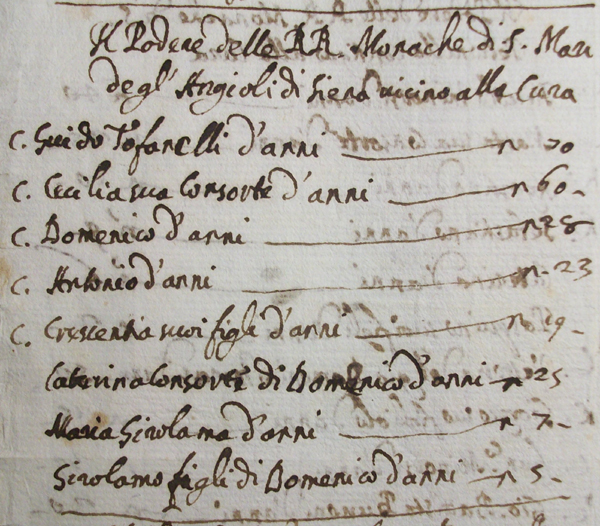 Il Podere delle RR. Monache di S. Mari
degl' Angioli di Siena vicino alla Cura
C. Guido Tofanelli d'anni n 70
C. Cecilia sua Consorte d'anni n 60
C. Domenico d'anni n 28
C. Antonio d'anni n 23
C. Crescentia suoi figli d'anni n 19
Caterina Consorte di Domenico d'anni n 25
Maria Girolama d'anni n 7
Girolamo figli di Domenico d'anni n 5